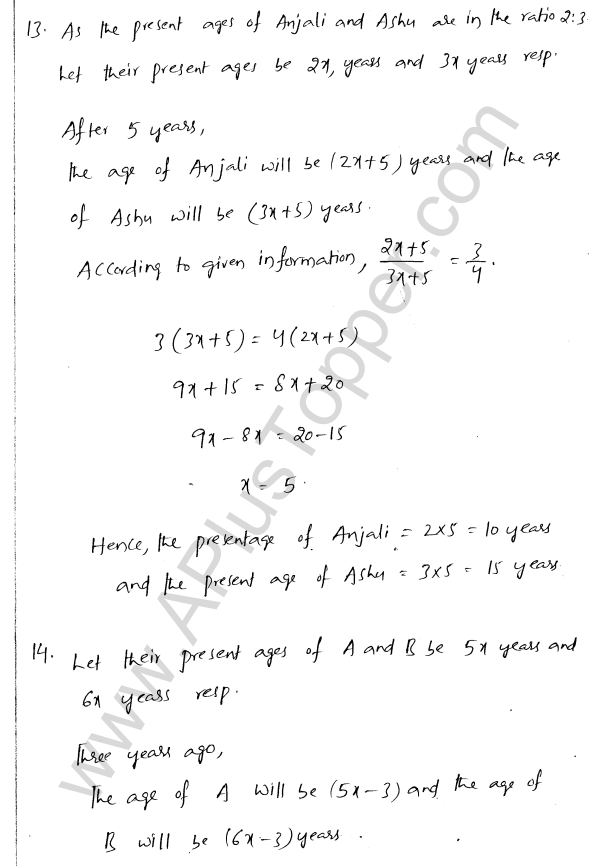 13. As the present ages of Anjali and Ashu are in the ratio 2:3
Let their present ages be 2x, years and 3x years resp.
After 5 years,
the age of Anjali will be (2x+5) years and the age
of Ashu will be (3x+5) years.
According to given information, (2x+5)/(3x+5) = 3/4.
3(3x+5) = 4(2x+5)
9x+15 = 8x+20
9x-8x = 20-15
x = 5.
Hence, the present age of Anjali = 2x5 = 10 years
and the present age of Ashu = 3x5 = 15 years
14. Let their present ages of A and B be 5x years and
6x years resp.
Three years ago,
The age of A will be (5x-3) and the age of
B will be (6x-3) years.
www.APlusTopper.com